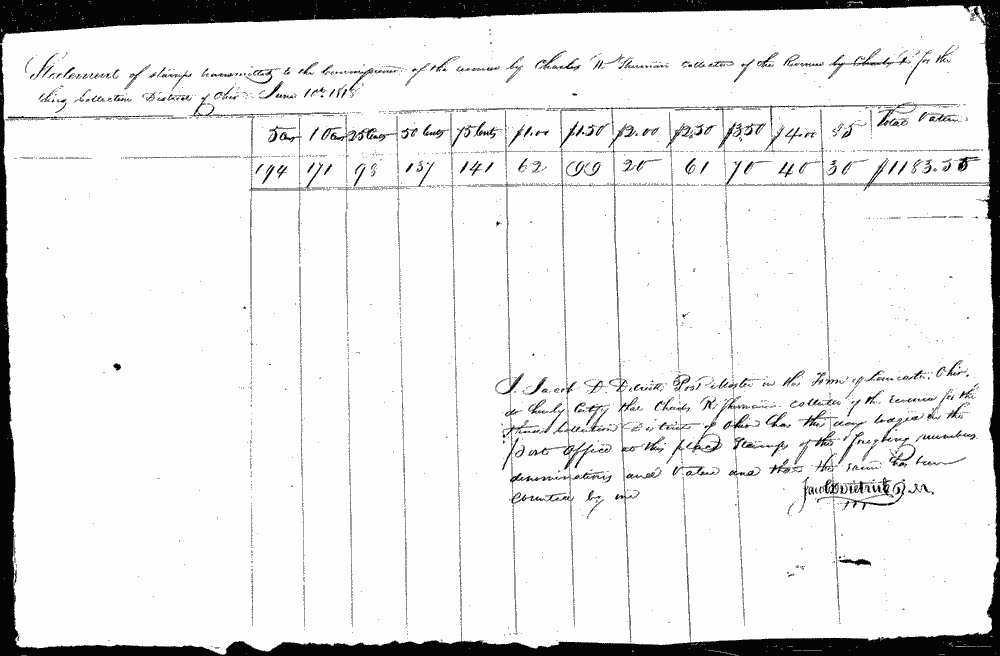 Statement of stamps transmitted to the Commissioner of the revenue by Charles R Sherman collector of the Revenue by Charles R for the
third Collection District of Ohio June 10th 1818
5 cts 10 cts 25 cents 50 Cents 75 Cents $1.00 $1.50 $2.00 $2.50 $3.50 $4.00 Total Value
194 171 98 157 141 62 99 20 61 70 40 30 $1183.55
I, Jacob D Detrick Post Master in the Town of Lancaster, Ohio,
do hereby Certify that Charles R Sherman collector of the revenue for the
third Collection District of Ohio has this day lodged in the
post Office at this place Stamps of the foregoing numbers
denominations and Value and that the same has been
Counted by me
Jacob D Dietrick P. M.